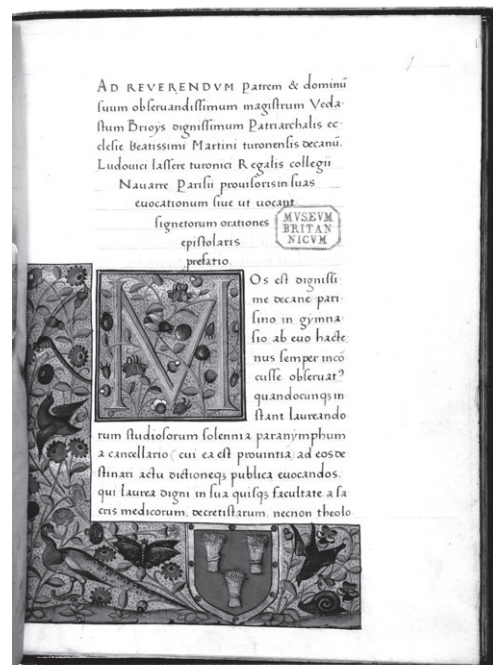 AD REVERENDVM patrem & dominū
suum obseruandissimum magistrum Veda-
stum Brioys dignissimum Patriarchalis ec
clesie Beatissimi Martini turonensis decanū.
Ludouici lassere turonici Regalis collegii
Nauarre Parisii prouisoris in suas
euocationum siue ut uocant
signetorum orationes
epistolaris
prefatio.
MVSEVM
BRITAN
NICVM
MOs est dignissi
me decane pari
sino in gymna
sio ab euo hacte
nus semper incō
cusse obseruatꝰ
quandocunqꝫ in
stant laureando
rum studiosorum solennia paranymphum
a cancellario (cui ea est prouintia) ad eos de
stinari actu dictioneqꝫ publica euocandos.
qui laurea digni in sua quisqꝫ facultate a sa
cris medicorum, decretistarum, necnon theolo